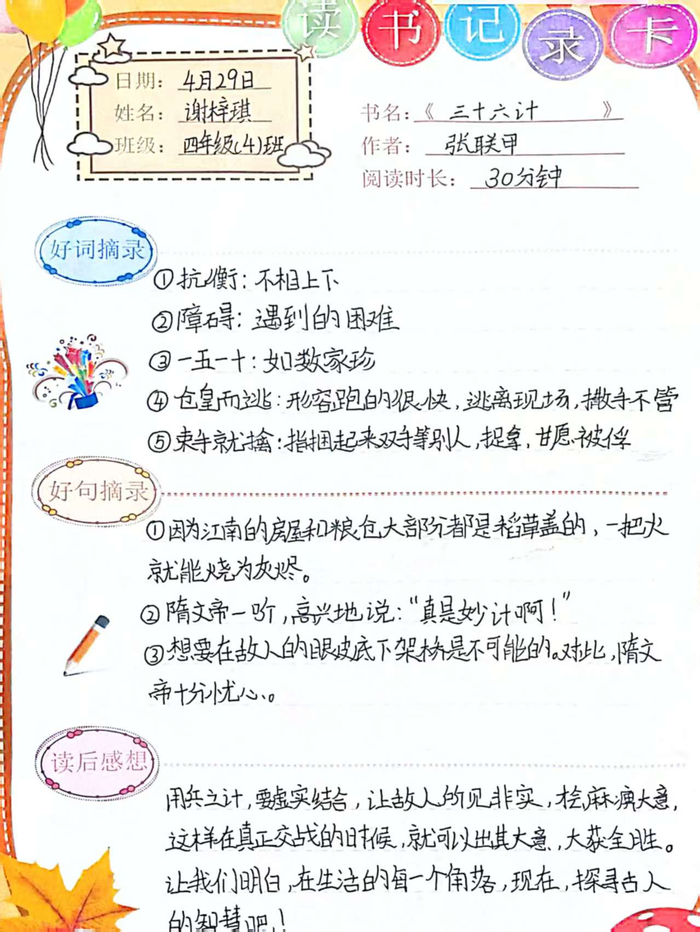 读书记录卡
日期：4月29日
姓名：谢梓琪
班级：四年级(4)班
书名：《三十六计》
作者：张联甲
阅读时长：30分钟
好词摘录
①抗衡：不相上下
②障碍：遇到的困难
③一五一十：如数家珍
④仓皇而逃：形容跑的很快，逃离现场，撒手不管
⑤束手就擒：指捆起来双手等别人，捉拿，甘愿被俘
好句摘录
①因为江南的房屋和粮仓大部分都是稻草盖的，一把火
就能烧为灰烬。
②隋文帝一听，高兴地说：“真是妙计啊！”
③想要在敌人的眼皮底下架桥是不可能的。对比，隋文
帝十分忧心。
读后感想
用兵之计，要虚实结合，让敌人所见非实，麻演大意，
这样在真正交战的时候，就可以出其大意，大获全胜。
让我们明白，在生活的每一个角落，现在，探寻古人
的智慧吧！